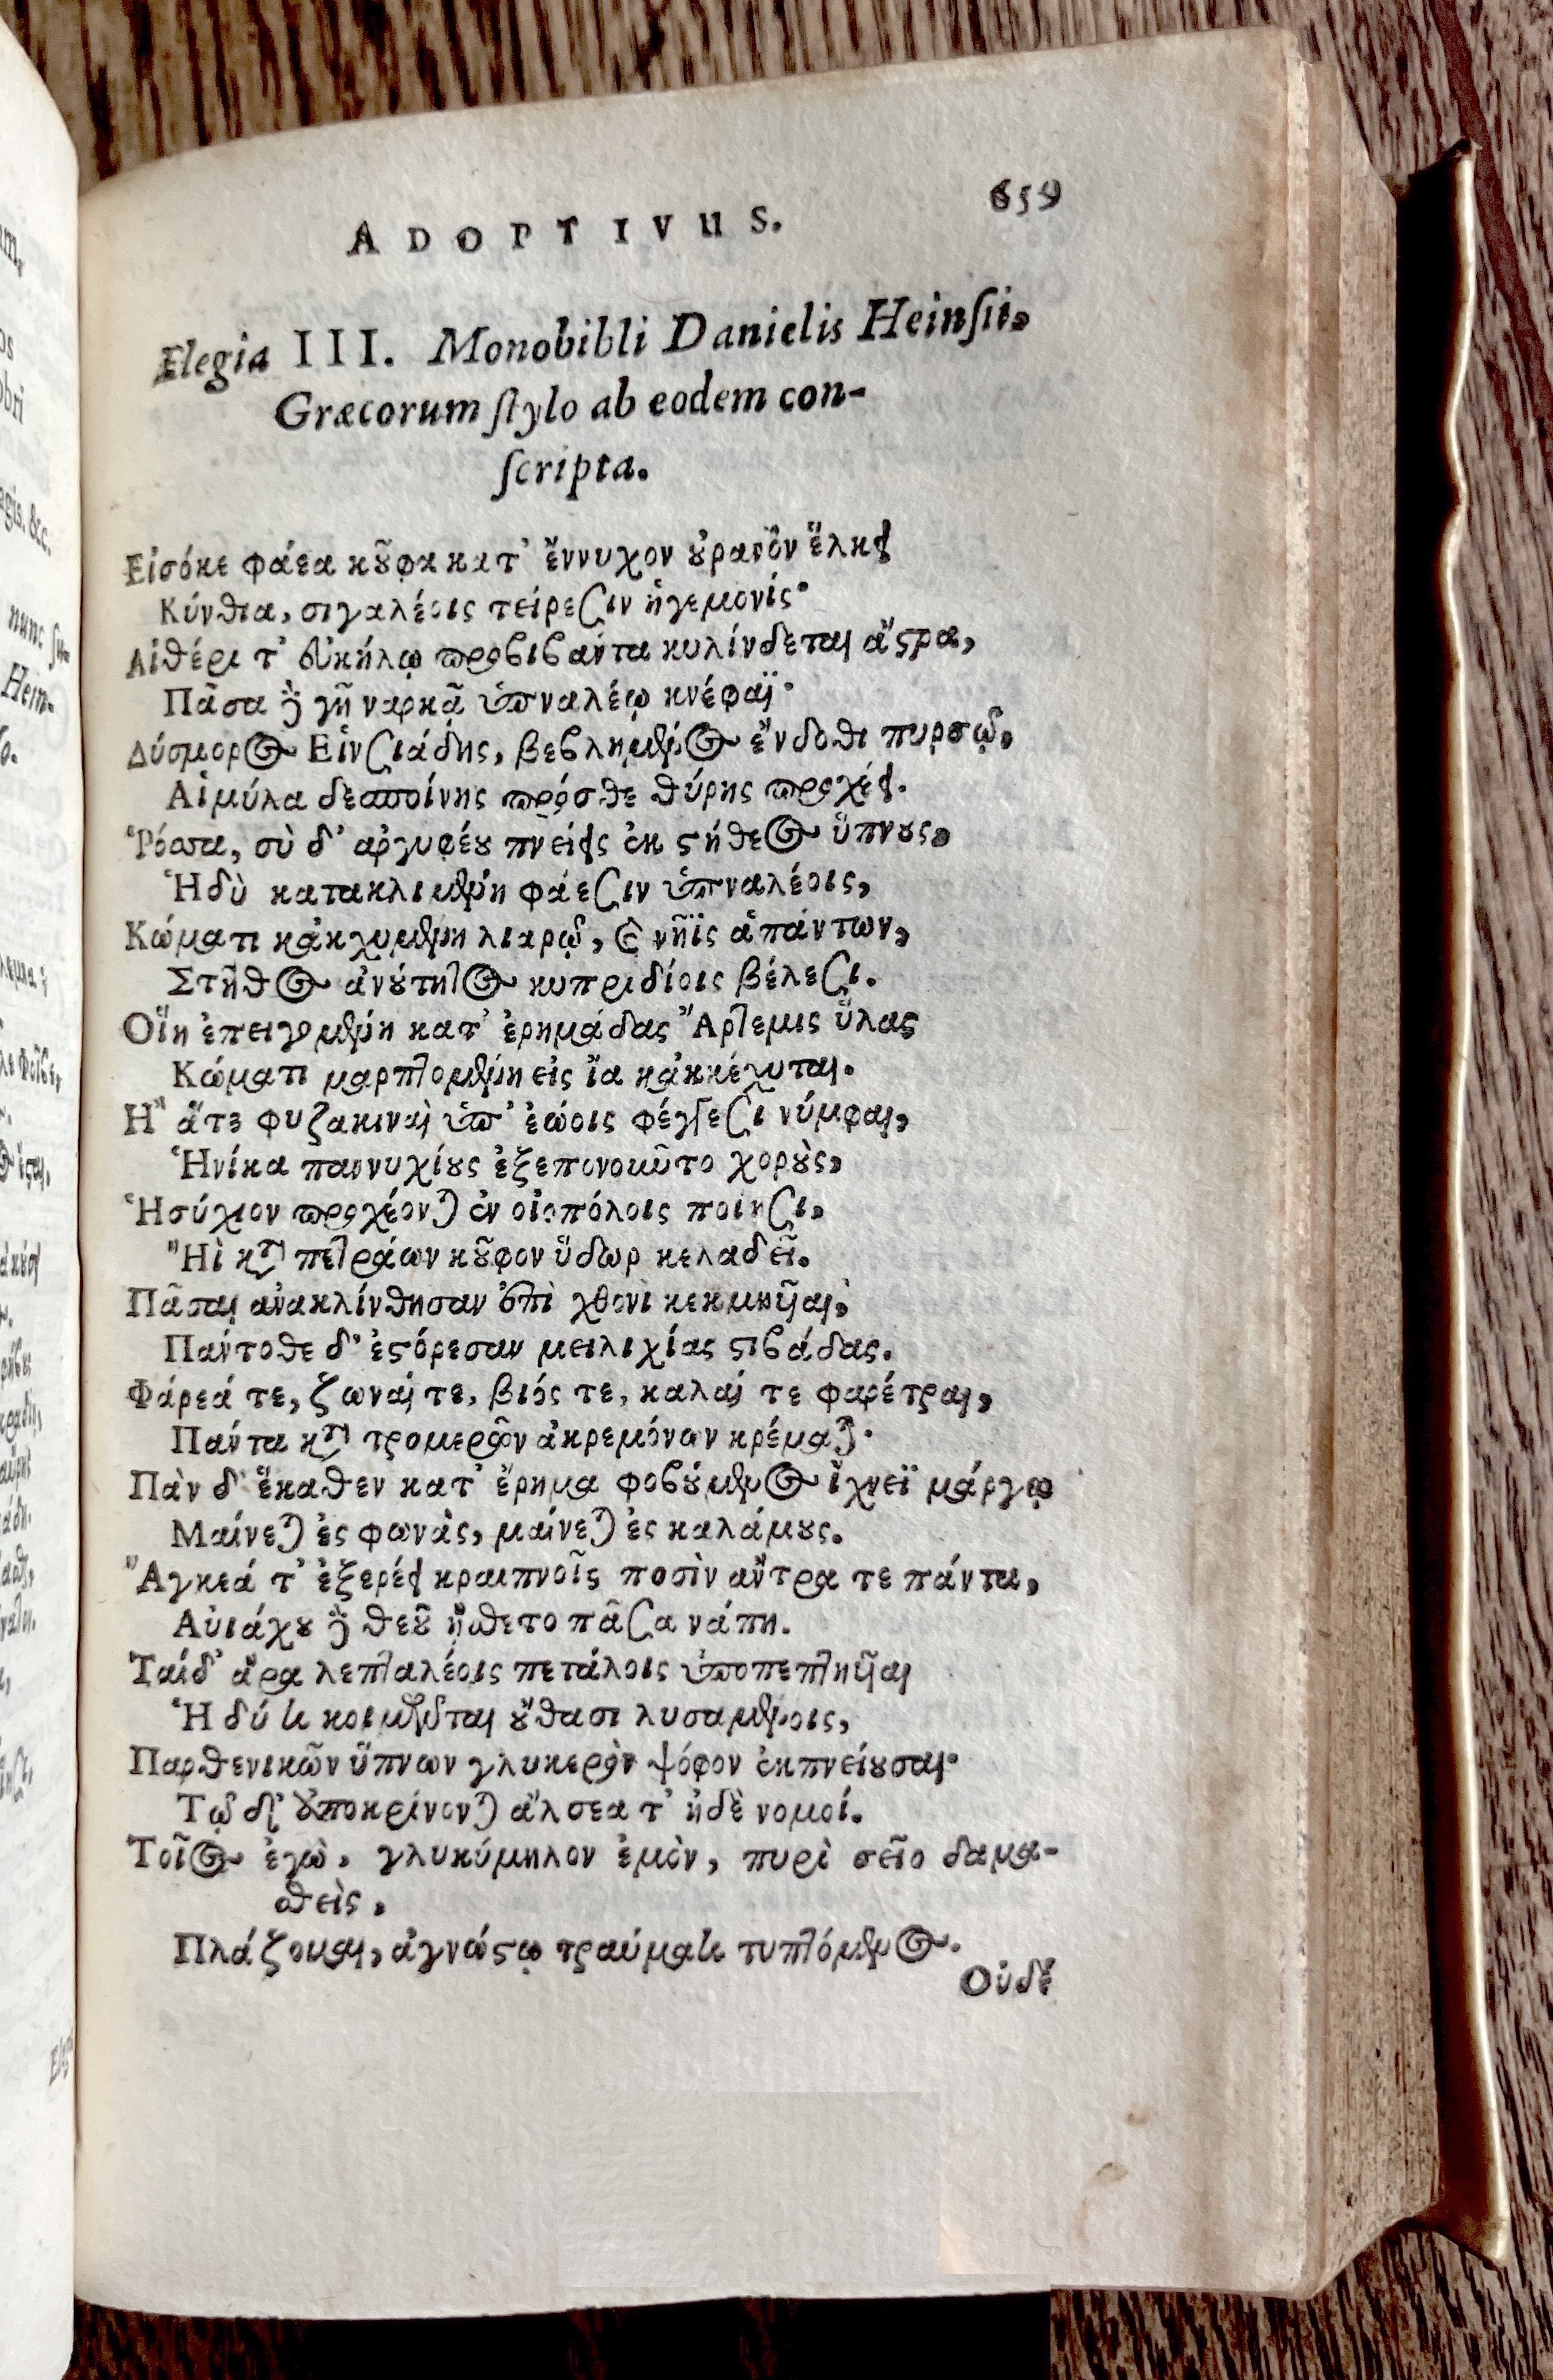 ADOPTIVUS.
659
Elegia III. Monobibli Danielis Heinſii.
Græcorum ſtylo ab eodem con-
ſcripta.
Εἰσόκε φάεα κȣ͂φα κατ᾽ ἔννυχον ȣ̓ρανὸν ἕλκει
Κύνθια, σιγαλέοις τείρεσιν ἡγεμονίς·
Αἰθέρι τ᾽ εὐκήλῳ προβιβάντα κυλίνδεται ἄϛρα,
Πᾶσα δὲ γῆ ναρκᾷ ὑπναλέῳ κνέφαϊ·
Δύσμορος Εἱνσιάδης, βεβλημένος ἔνδοθι πυρσῷ,
Αἱμύλα δεσποίνης πρόσθε θύρης προχέει.
Ῥόσσα, σὺ δ᾽ ἀργυφέȣ πνείεις ἐκ ϛήθεος ὕπνȣς,
Ἡδὺ κατακλιμένη φάεσιν ὑπναλέοις,
Κώματι κἀκχυμένη λιαρῷ, καὶ νῆϊς ἁπάντων,
Στῆθος ἀνȣ́τητος κυπριδίοις βέλεσι.
Οἵη ἐπειγομένη κατ᾽ ἐρημάδας Ἄρτεμις ὕλας
Κώματι μαρπτομένη εἰς ἴα κἀκκέχυται.
Ἢ ἅτε φυζακιναὶ ὑπ᾽ ἑώοις φέγγεσι νύμφαι,
Ἡνίκα παννυχίȣς ἐξεπονοῦντο χορȣ̀ς,
Ἡσύχιον προχέονται ἐν οἰοπόλοις ποίησι,
Ἧι κατὰ πετράων κȣ͂φον ὕδωρ κελαδεῖ.
Πᾶσαι ἀνακλίνθησαν ἐπὶ χθονὶ κεκμηῆται,
Παντοθε δ᾽ ἐϛόρεσαν μειλιχίας ϛιβάδας.
Φάρεά τε, ζωναί τε, βιός τε, καλαί τε φαρέτραι,
Παντα κατὰ τρομερῶν ἀκρεμόνων κρέμαται·
Πὰν δ᾽ ἕκαθεν κατ᾽ ἔρημα φοβȣ́μενος ἴχνεϊ μάργῳ
Μαίνεται ἐς φωνὰς, μαίνεται ἐς καλάμȣς.
Ἄγκεά τ᾽ ἐξερέει κραιπνοῖς ποσὶν ἄντρα τε πάντα,
Αὐιάχȣ δὲ θεȣ͂ ᾔσθετο πᾶσα νάπη.
Ταίδ᾽ ἄρα λεπταλέοις πετάλοις ὑποπεπτηῆται
Ἡδύ τι κοιμῶνται ȣ̓́θασι λυσαμένοις,
Παρθενικῶν ὕπνων γλυκερὸν ψόφον ἐκπνείȣσαι·
Τῷ δ᾽ ὑποκρίνονται ἄλσεα τ᾽ ἠδὲ νομοί.
Τοῖος ἐγὼ, γλυκύμηλον ἐμὸν, πυρὶ σεῖο δαμα-
σθεὶς,
Πλάζομαι, ἀγνώϛῳ τραύματι τυπτόμενος.
Οὐδὲ